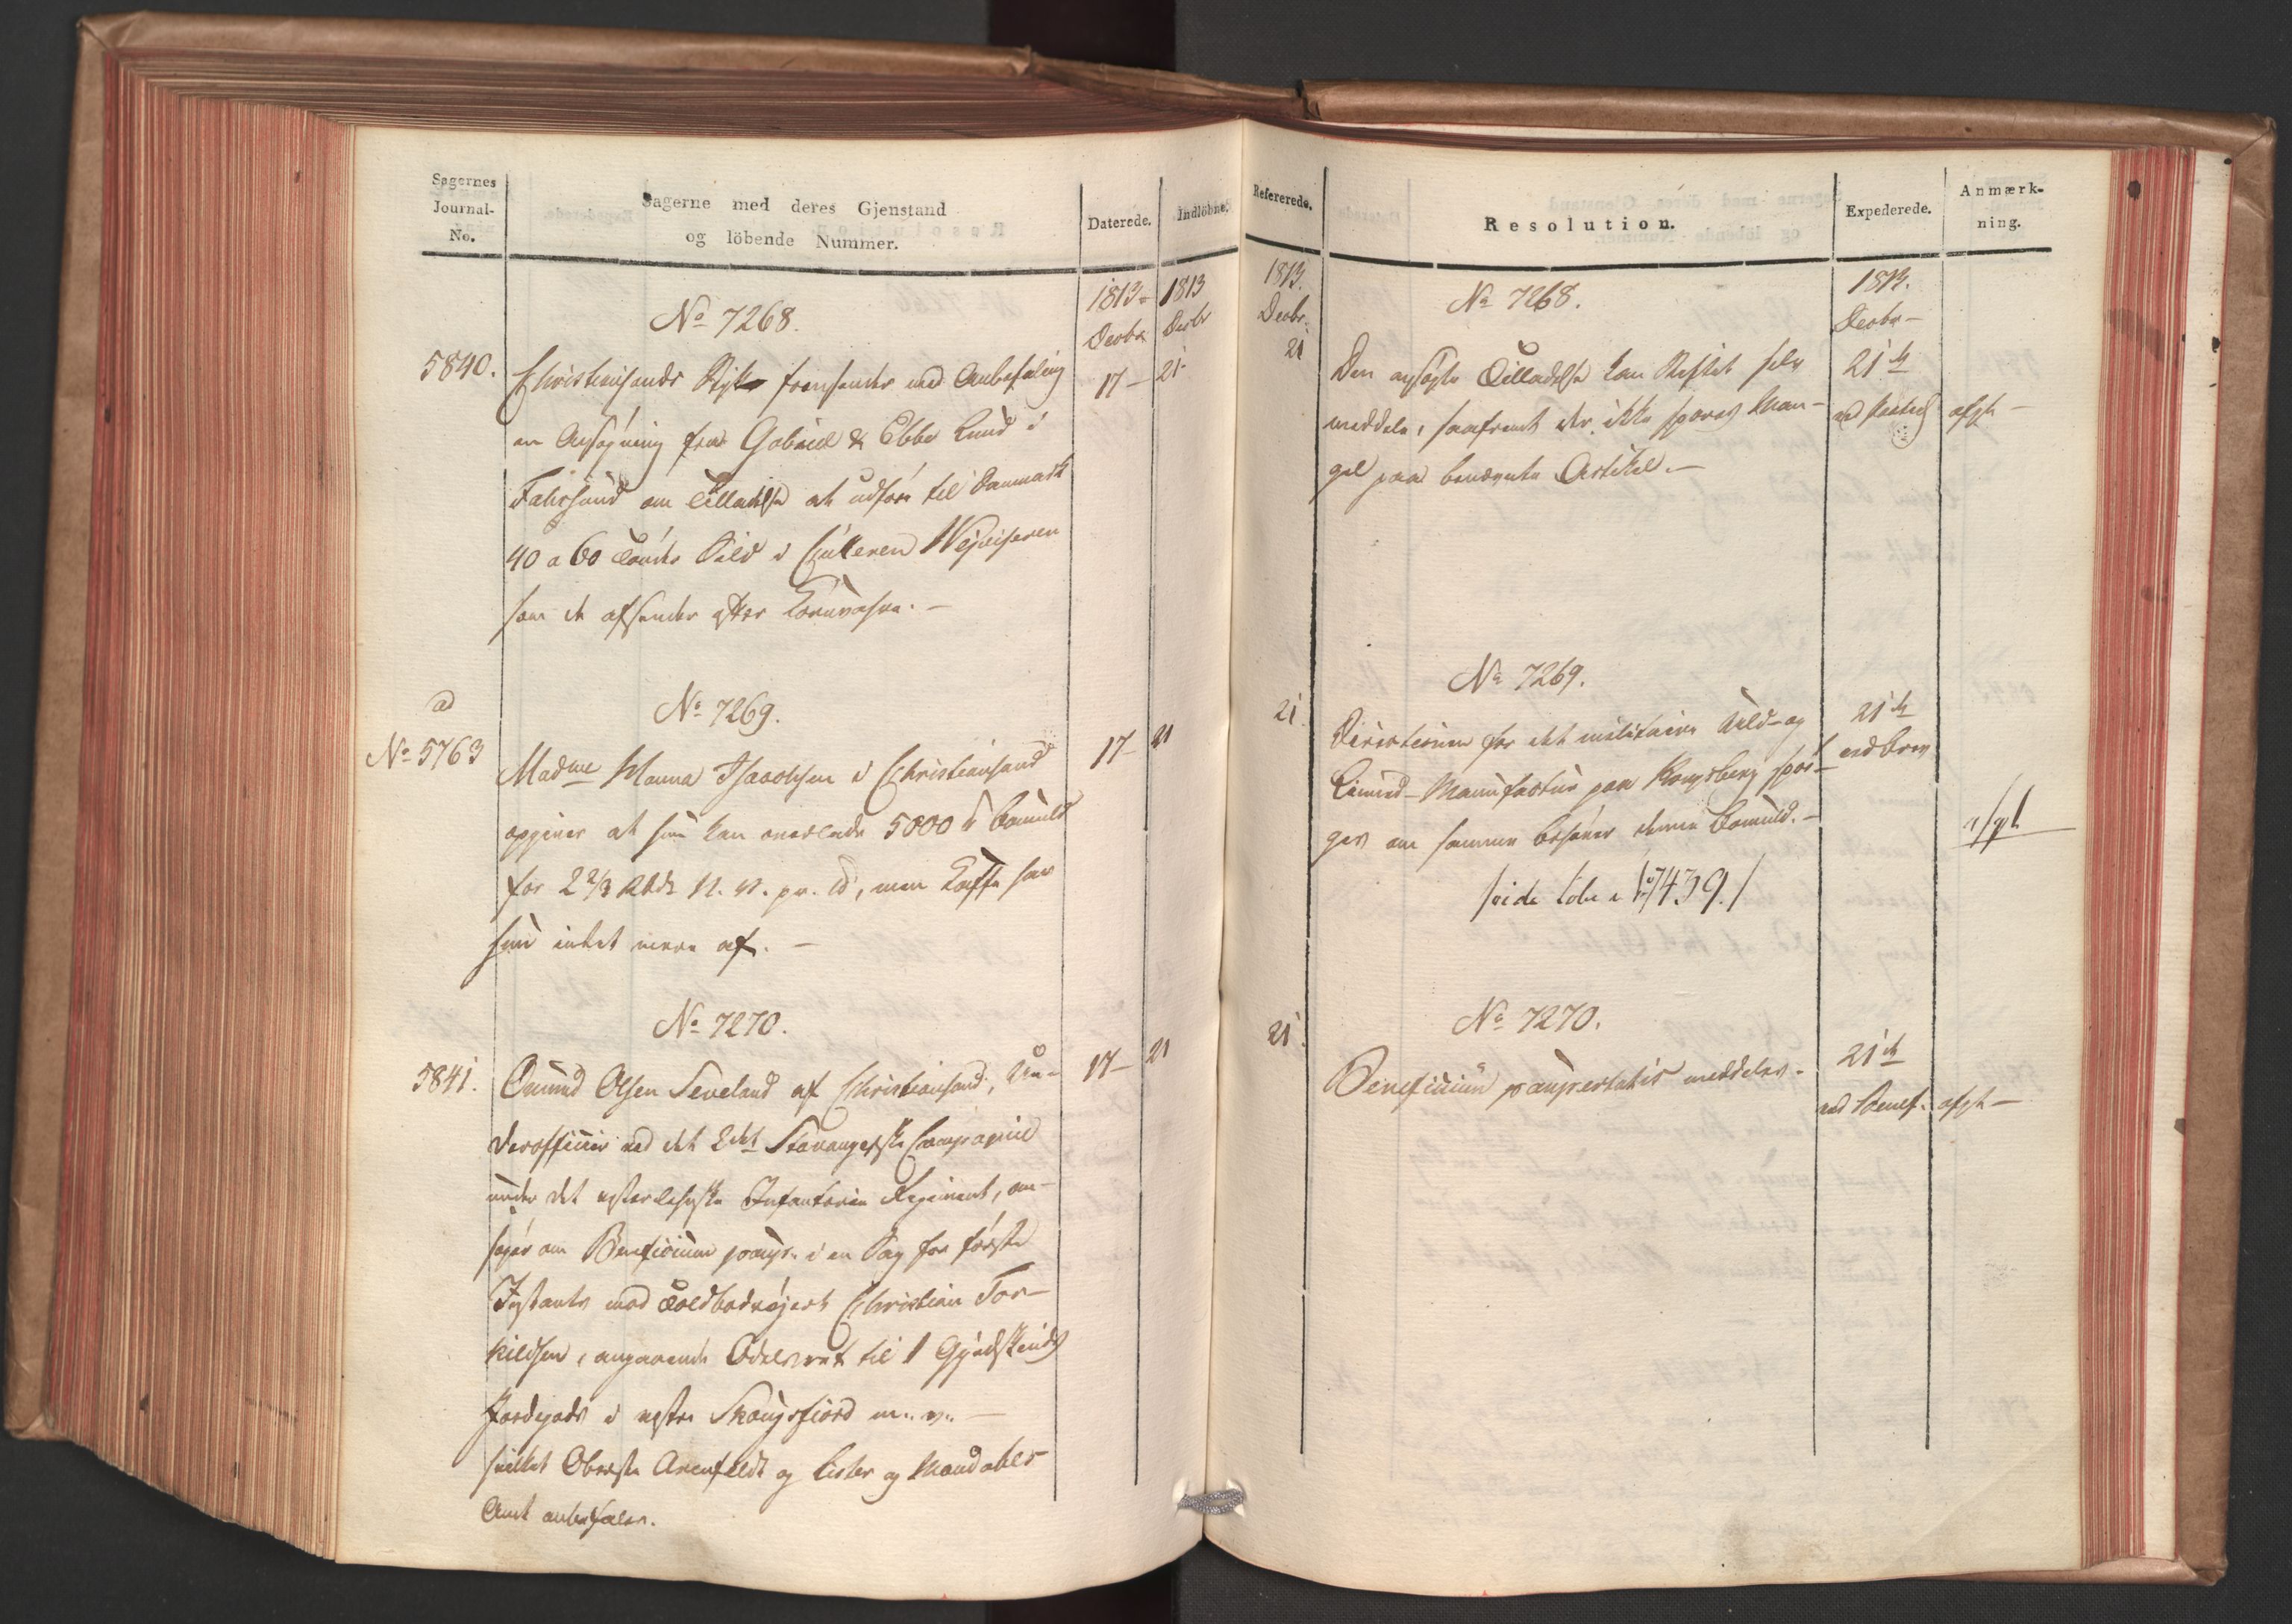 Sagernes
Journal-
No.
Sagerne med deres Gjenstand
og löbende Nummer.
Daterede.
Indlöbne.
1813
Decbr
1813
Decbr
No 7268.
5840.
Christiansands Stift fremsender med Anbefaling
en Ansøgning fra Gabriel & Ebbe Lund i
Farsund om Tilladelse at udføre til Danmark
40 a 60 Tønder Sild i Galleren Wejviseren
som de afsender efter Kornvahre.
17
21
ad
No 5763
No 7269.
Madme Hanna Isaachsen i Christiansand
opgiver at hun kan overlade 5000 ℔ Bomuld
for 2 2/3 Rbdr N. V. pr. ℔, men Kaffe har
hun intet mere af.
17
21
No 7270.
5841.
Omund Olsen Seveland af Christiansand, Un-
derofficier ved det 2det Stavangerske Compagnie
under det vesterlehnske Infanterie Regiment, an-
søger om Beneficium paup. i en Sag for første
Instants mod Toldbetjent Christian Tor-
kildsen, angaaende Odelsret til 1 Gjedskinds
Jordegods i vestre Skougsfiord m. v.
hvilket Oberste Arenfeldt og Lister og Mandahls
Amt anbefaler.
17
21
Refererede.
Resolution.
Expederede.
Anmærk-
ning.
1813.
Decbr.
1813.
Decbr
21
No 7268.
Den ansøgte Tilladelse kan Stiftet selv
meddele, saafremt der ikke spores Man-
gel paa benævnte Artikel.
21de
afgt
21
No 7269.
Directionen for det militaire Uld- og
Linned-Manufactur paa Kongsberg spør-
ges om samme behøver denne Bomuld.
/vide løbe No 7439./
21de
ved Brev
afgt
21
No 7270.
Beneficium paupertatis meddeles.
21de
ved Benef.
afgt